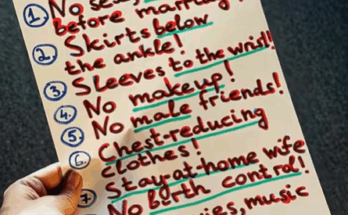 1. No
before
2. Skirts below
the ankle!
3. Sleeves to the wrist!
4. No makeup!
5. No male friends!
6. Chest-reducing
clothes!
7. Stay-at-home wife
No birth control!
music